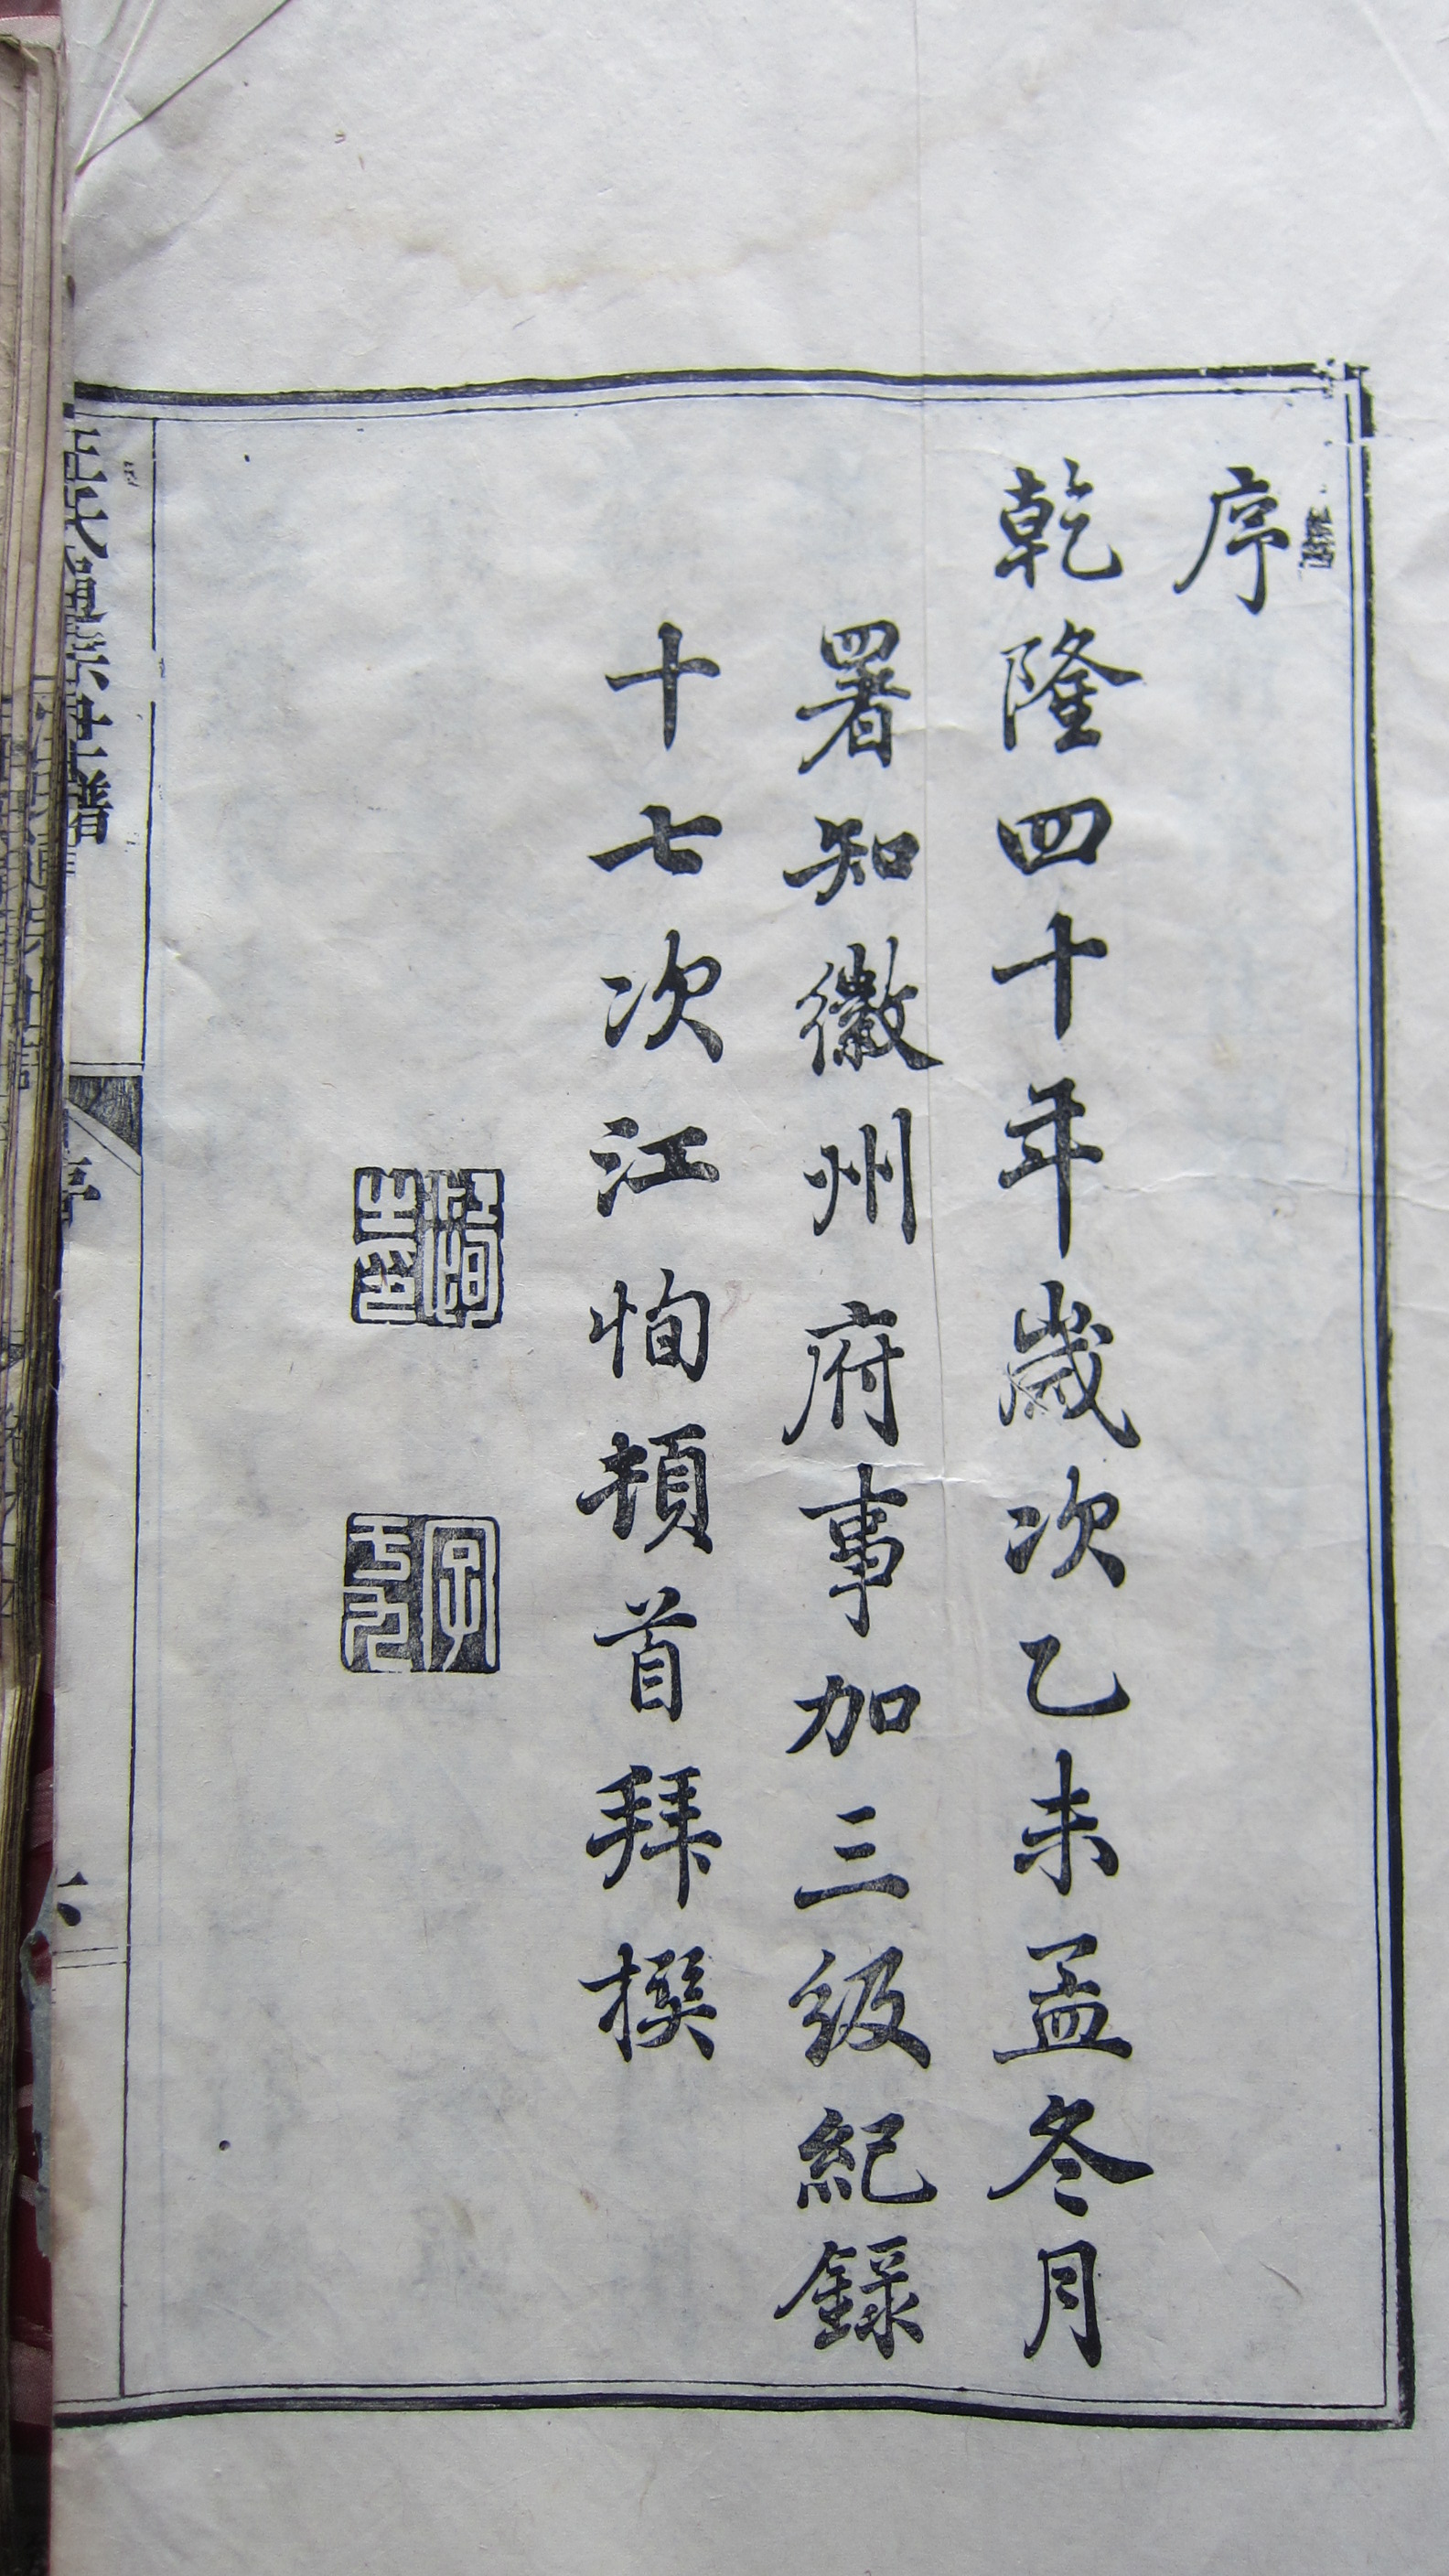 序
乾隆四十年歲次乙未孟冬月
署知徽州府事加三級紀錄
十七次江恂頓首拜撰
江恂之印
字于九